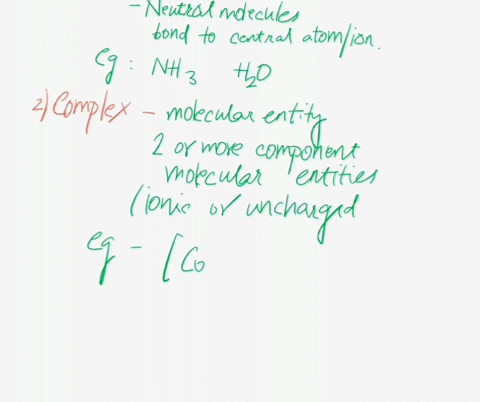 - Neutral molecules
bond to central atom/ion.
eg : NH3 H2O
2) Complex - molecular entity
2 or more component
molecular entities
(ionic or uncharged
eg - [Co